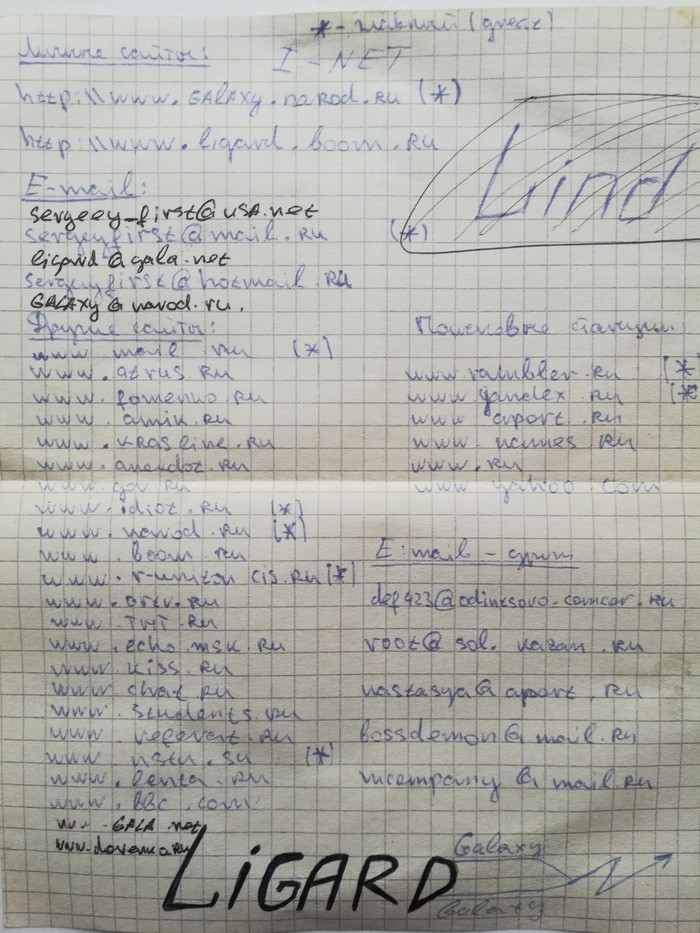 *- главный (great)
Личные сайты: I-NET
http:\\www.GALAXY.narod.RU (*)
http:\\www.ligard.boom.RU
Lind
E-mail:
sergeey-first@USA.net
sergeyfirst@mail.RU (*)
ligard@gala.net
sergeyfirst@hotmail.RU
GALAXY@narod.ru.
Другие сайты:
www.mail.ru (*)
www.atrus.RU
www.fomenko.RU
www.amik.RU
www.KRASline.RU
www.anekdot.RU
www.gov.RU
www.idiot.RU (*)
www.narod.RU (*)
www.boom.RU
www.r-union.cis.RU (*)
www.ortv.RU
www.THT.RU
www.echo.msk.RU
www.kiss.RU
www.chat.RU
www.students.RU
www.referat.RU
www.nstu.su (*)
www.lenta.RU
www.bbc.com
www.GALA.net
Поисковые станции
www.rambler.RU (*
www.yandex.RU (*
www.aport.RU
www.names.RU
www.RU
www.yahoo.com
E:mail - групп
def423@odintsovo.comcor.RU
root@sol.kazan.RU
nastasya@aport.RU
bossdemon@mail.RU
mcompany@mail.RU
LiGARD
Galaxy
Galaxy